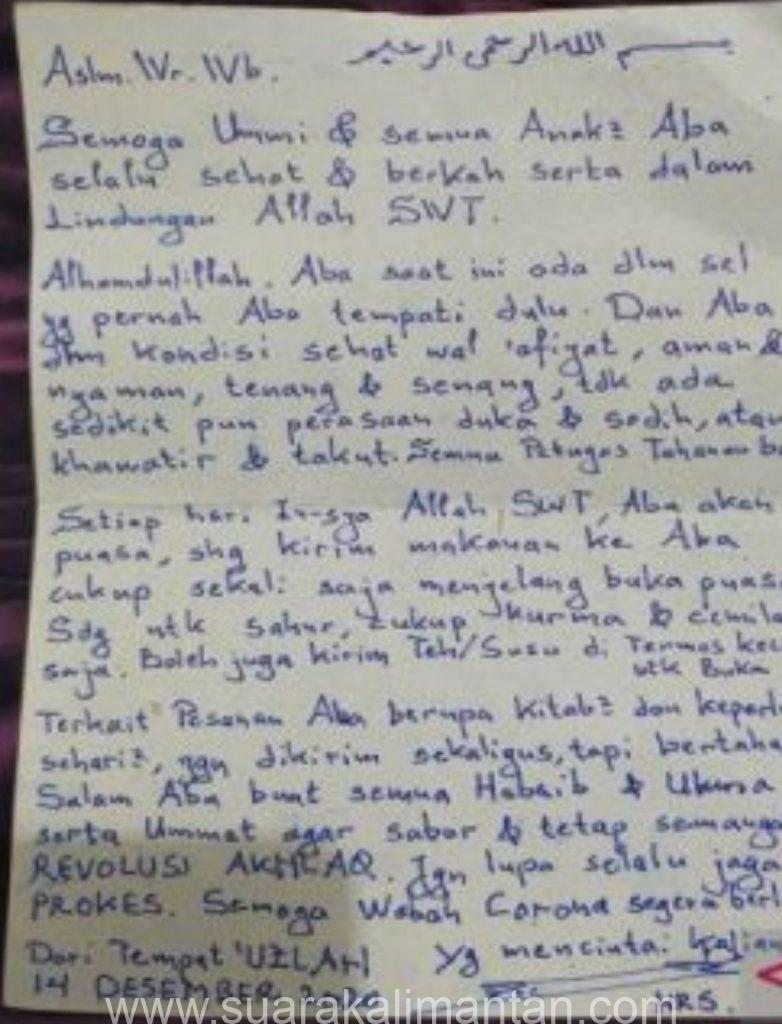 بسم الله الرحمن الرحيم
Aslm. Wr. Wb.
Semoga Ummi & semua Anak2 Aba
selalu sehat & berkah serta dalam
Lindungan Allah SWT.
Alhamdulillah. Aba saat ini ada dlm sel
yg pernah Aba tempati dulu. Dan Aba
dlm kondisi sehat wal 'afiyat, aman &
nyaman, tenang & senang, tdk ada
sedikit pun perasaan duka & sedih, atau
khawatir & takut. Semua Petugas Tahanan ba
Setiap hari In-sya Allah SWT, Aba akan
puasa, shg kirim makanan ke Aba
cukup sekali saja menjelang buka puas
Sdg utk sahur, cukup kurma & cemil
saja. Boleh juga kirim Teh/Susu di Termos kec
utk Buka
Terkait Pesanan Aba berupa kitab2 dan keperl
sehari2, jgn dikirim sekaligus, tapi bertaha
Salam Aba buat semua Habaib & Ulama
serta Ummat agar sabar & tetap semanga
REVOLUSI AKHLAQ. Jgn lupa selalu jaga
PROKES. Semoga Wabah Corona segera berl
Dari Tempat 'UZLAH Yg mencintai kalian
14 DESEMBER 2020 HRS.
www.suarakalimantan.com